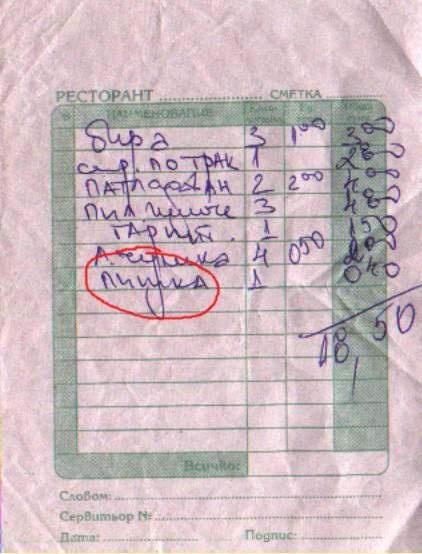 РЕСТОРАНТ СМЕТКА
№ НАИМЕНОВАНИЕ
бира 3 1 00 3 00
сир. ПО ТРАК 1 2 80
ПАТЛАДЖАН 2 2 00 4 00
ПИЛ. 3 4 80
ГАРНИТ. 1 1 50
А. 4 0 50 2 00
ПИШКА 1 0 40
18,50
Всичко:
Словом:
Сервитьор №
Дата: Подпис: